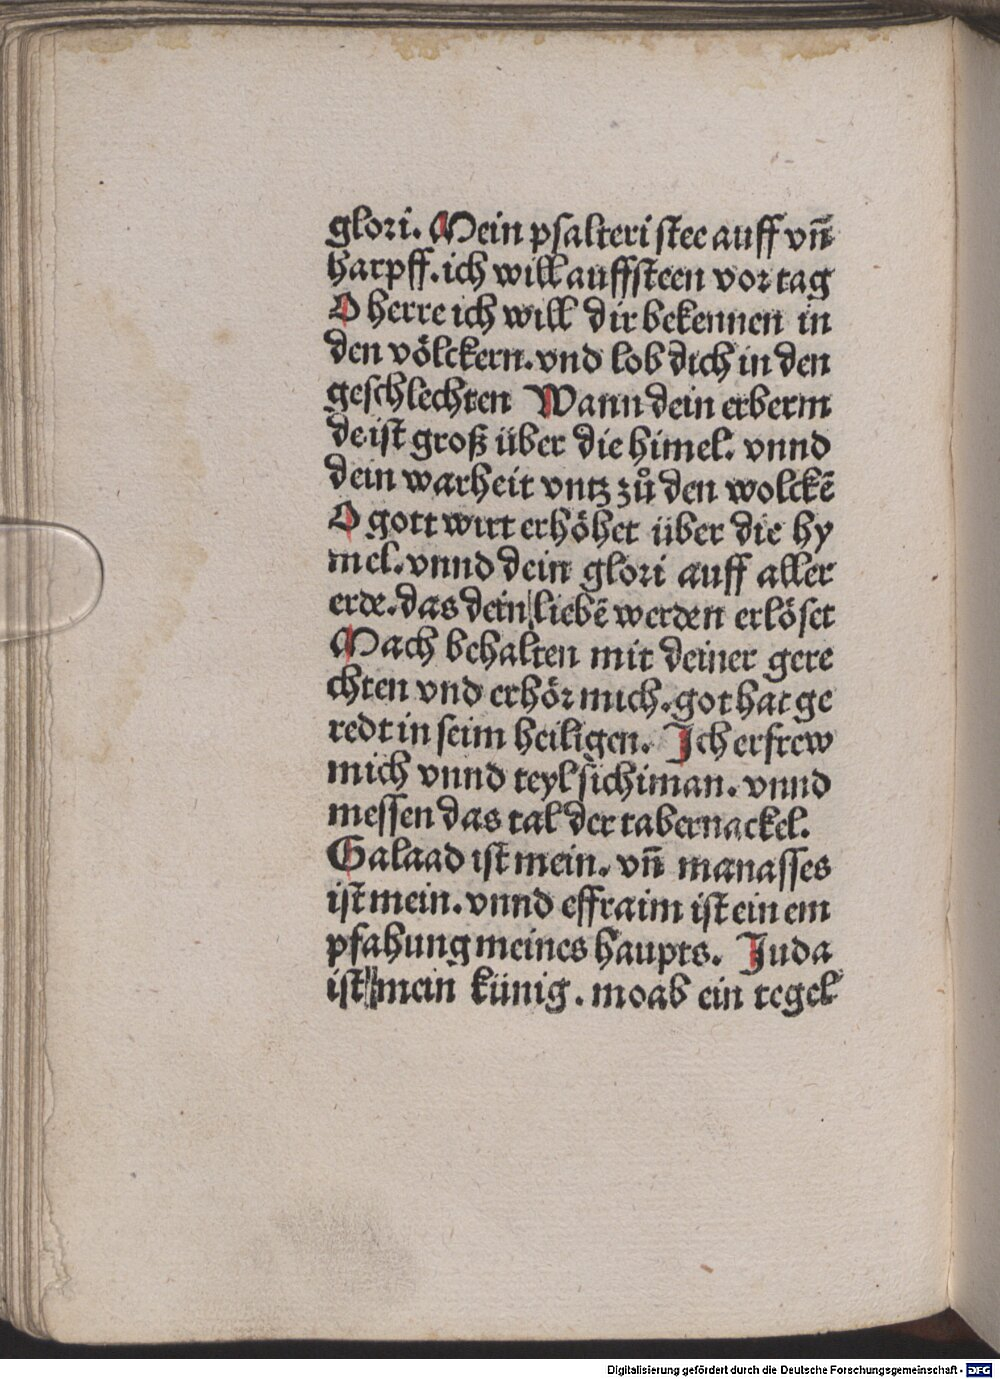 glori. Mein psalteri stee auff vn̄
harpff. ich will auffsteen vor tag
O herre ich will dir bekennen in
den völckern. vnd lob dich in den
geschlechten Wann dein erberm
de ist groß über die himel. vnnd
dein warheit vntz zů den wolckē
O gott wirt erhöhet über die hy
mel. vnnd dein glori auff aller
erde. das dein liebē werden erlöset
Mach behalten mit deiner gere
chten vnd erhör mich. got hat ge
redt in seim heiligen. Ich erfrew
mich vnnd teyl sichiman. vnnd
messen das tal der tabernackel.
Galaad ist mein. vn̄ manasses
ist mein. vnnd effraim ist ein em
pfahung meines haupts. Juda
ist mein künig. moab ein tegel
Digitalisierung gefördert durch die Deutsche Forschungsgemeinschaft - DFG